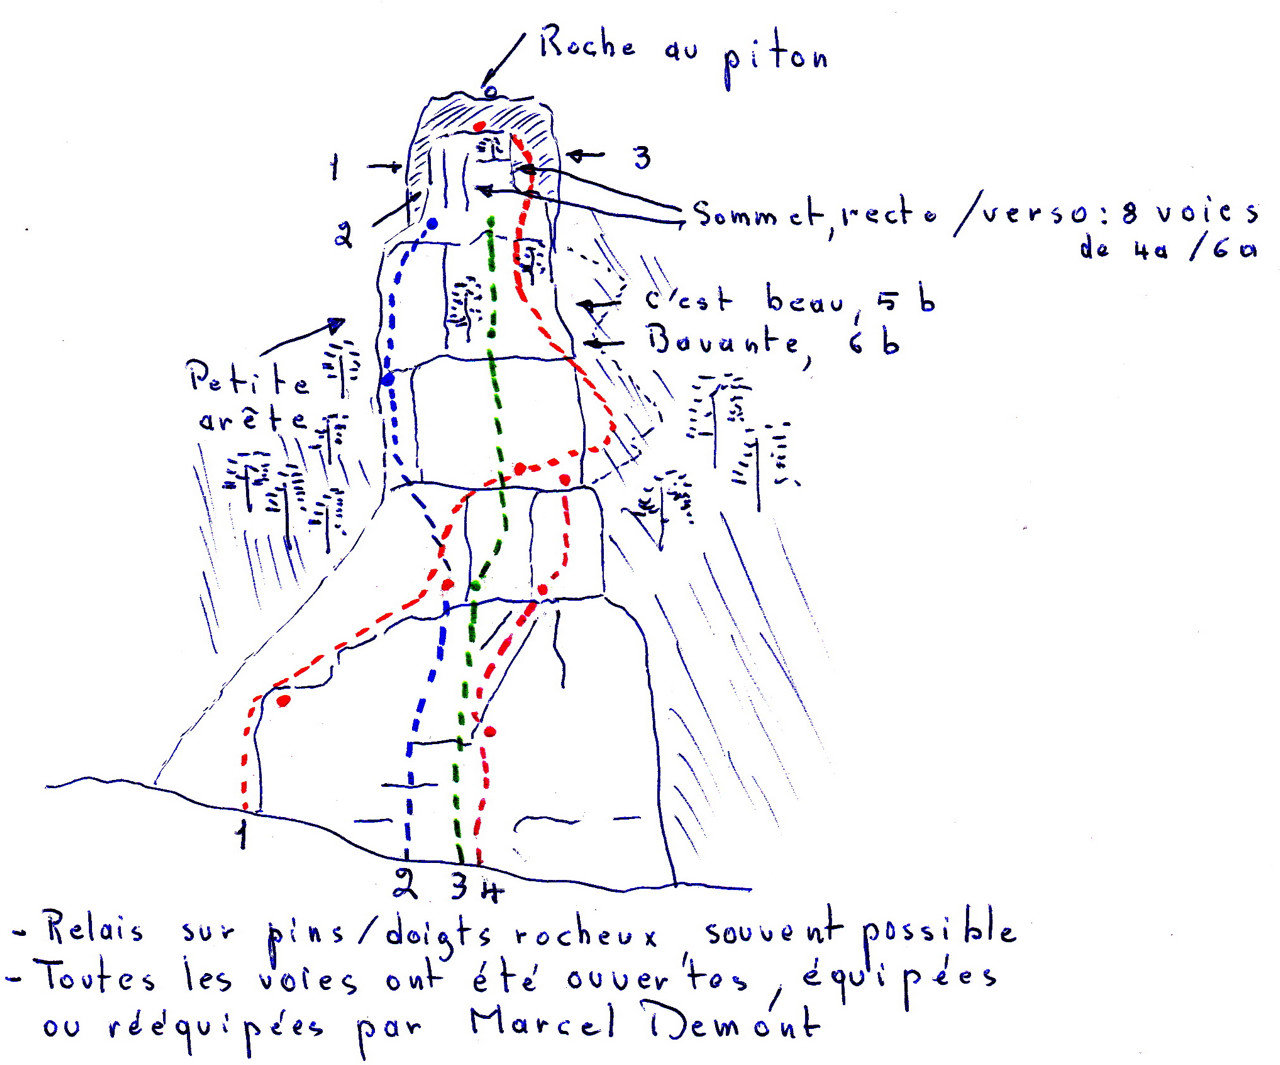 Roche au piton
1
3
2
Sommet, recto / verso : 8 voies
de 4a / 6a
c'est beau, 5 b
Bavante, 6 b
Petite
arête
1
2
3
4
- Relais sur pins / doigts rocheux souvent possible
- Toutes les voies ont été ouvertes, équipées
ou rééquipées par Marcel Demont